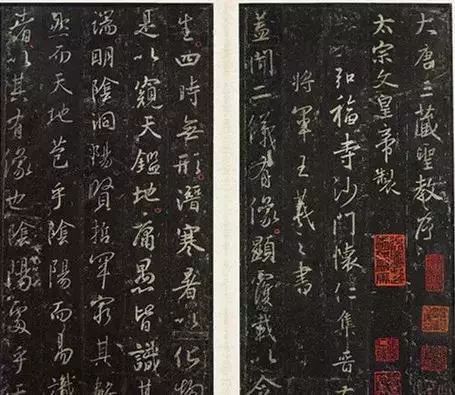 大唐三藏聖教序
太宗文皇帝製
弘福寺沙門懷仁集晉
將軍王羲之書
蓋聞二儀有像顯覆載以含
生四時無形潛寒暑以化物
是以窺天鑑地庸愚皆識其
端明陰洞陽賢哲罕窮其數
然而天地苞乎陰陽而易識
者以其有像也陰陽處乎